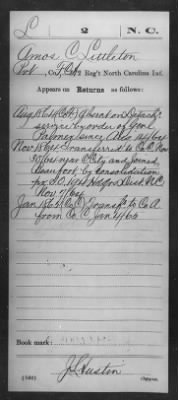 L 2 N. C.
Amos C. Littleton
Pvt, Co. F & C, 2 Reg't North Carolina Inf.
Appears on Returns as follows:
Aug 1864 (Co F) Absent on Detach'd
service by order of Genl
Palmer since
Nov 1864 Transferred to Co C Nov
30/64 near C City and joined
Beaufort by Consolidation
Dist N.C.
Nov 7/64
Jan 1865 (Co C) Transf'd to Co A
from Co C Jan 4/65
Book mark:
(546)
J. Hustin
Copyist.